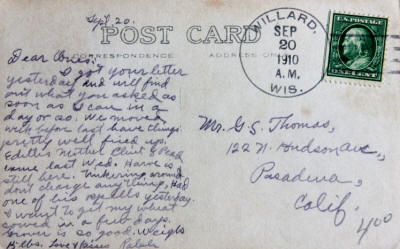 Sept 20.
POST CARD
CORRESPONDENCE
ADDRESS ONLY
WILLARD,
SEP
20
1910
A.M.
WIS.
U.S. POSTAGE
ONE CENT
Dear Ones:-
I got your letter
yesterday and will find
out what you asked as
soon as I can in a
day or so. We moved
week before last have things
pretty well fixed up.
Clint & Pearl
came last Wed.
still here. Tinkering around
don't charge anything, had
one of his spells yesterday.
I want to get my wheat
sowed in a few days.
is so good. Weighs
lbs. Love & Kisses
Mr. G. S. Thomas,
122 N. Hudson Ave,
Pasadena,
Calif.
400